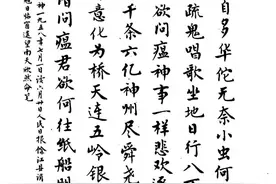 自多华佗无奈小虫何
疏鬼唱歌坐地日行八
欲问瘟神事一样悲欢逐
千条六亿神州尽舜尧
意化为桥天连五岭银
借问瘟君欲何往纸船
神一九五八年七月一日读六月卅日人民日报余江县消
旭日临窗遥望南天欣然命笔